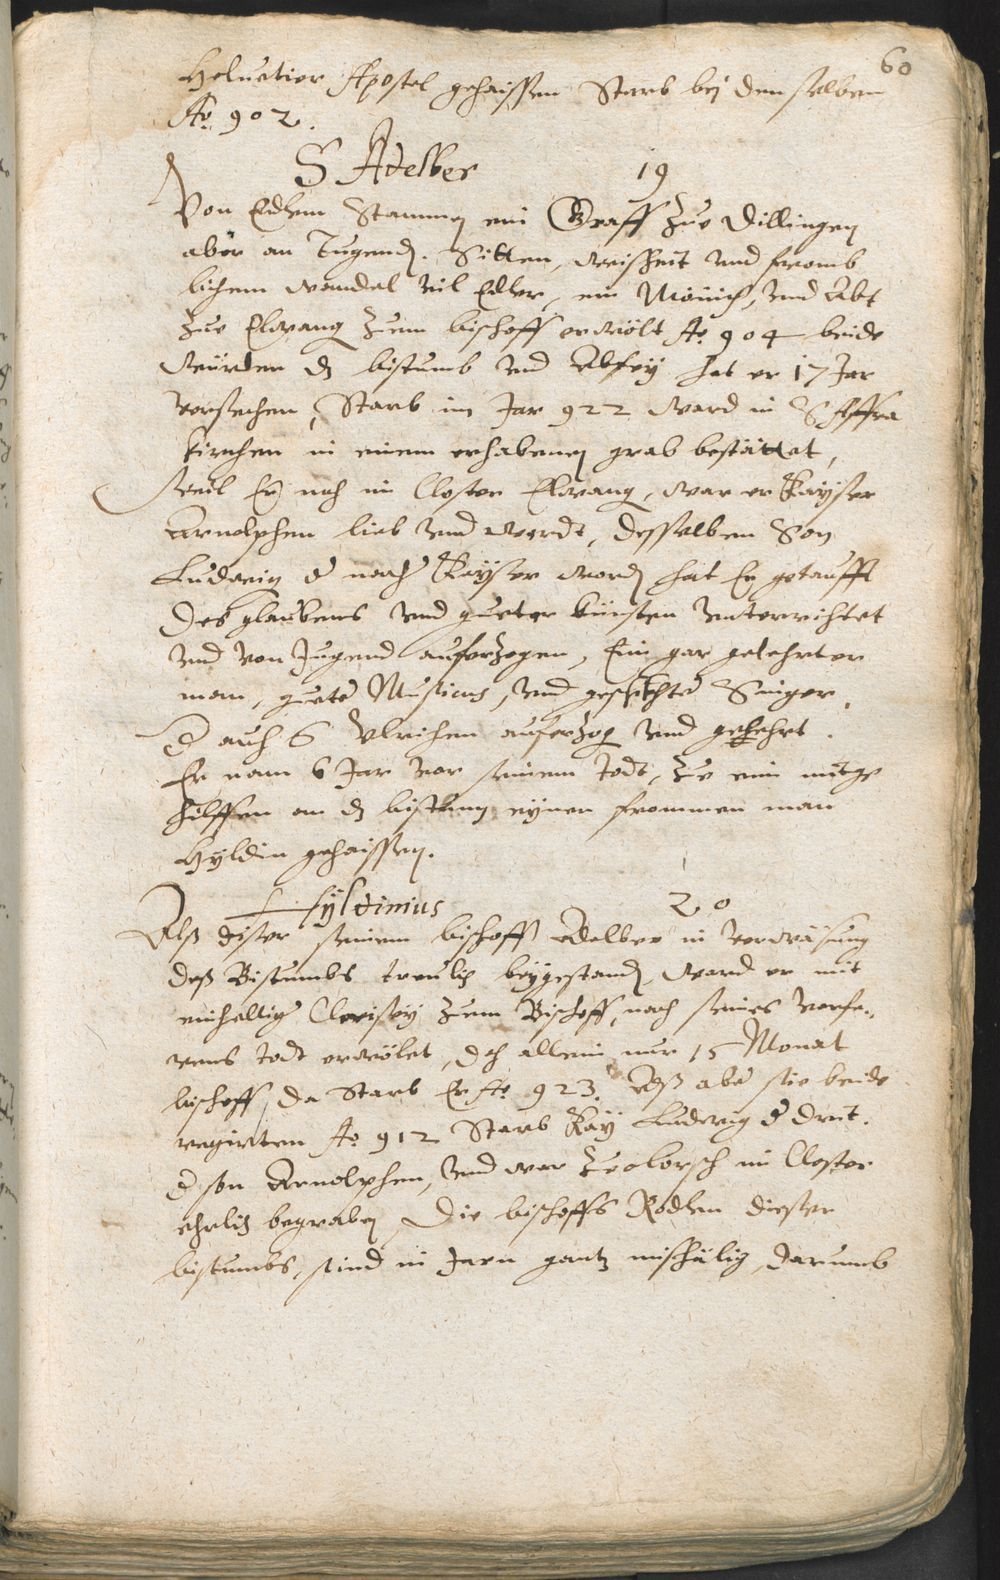 60
Heluetier Apostel gehaissen Starb bej den selben
Ao. 902.
S Adelber 19
Von Edlem Stammen ein Graff zue Dillingen
aber an Tugend, Sitten, weisheit vnd fromb
lichem wandel vil Edler, ein Mönich, vnd Abt
zue Elwang zum bischoff erwölt Ao. 904 beide
würden dz bistumb vnd Abtey hat er 17 Jar
versechen, Starb im Jar 922 ward in S Affra
kirchen in einem erhabenen grab bestättet,
weil Er noch im Closter Elwang, war er Kayser
Arnolphen lieb vnd werdt, desselben Son
Ludwig d nach Kayser word, hat Er getaufft
des glaubens vnd gueter künsten vnterrichtet
vnd von Jugend auferzogen, Ein gar gelehrter
man, guete Musicus, vnd geschickhte Singer.
d auch S Vlrichen auferzog vnd gelehrt.
Er nam 6 Jar vor seinem todt, zue ein mitge
hilffen an dz bistumb eynen frommen man
Hyldin gehaissen.
Hyldinius 20
Alß diser seinem bischoff Adelber in verwäsung
deß Bistumbs treulich beygestand, ward er mit
einhellige Clerisey zum Bischoff, nach seines vorfa„
rens todt erwölet, doch allein nur 15 Monat
bischoff, da Starb Er Ao. 923. Alß abe sie beide
regirten Ao 912 Starb Kay Ludwig d drit.
d son Arnolphen, vnd war zue lorsch im Closter
ehrlich begraben, Die bischoffs Rodlen dieser
bistumbs, sind in Jaren gantz mishälig, darumb